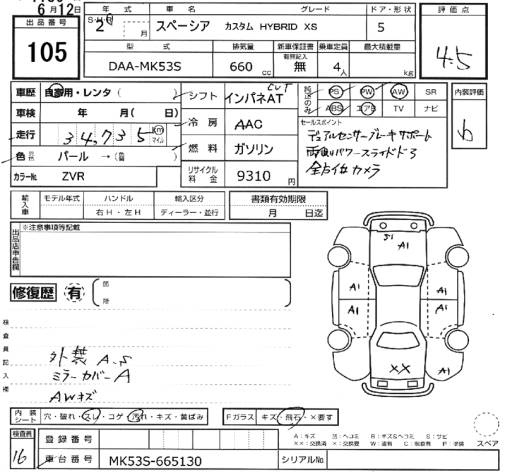 6月12日
出品番号
105
年 式 車 名 グレード ドア・形状
2 年 月 スペーシア カスタム HYBRID XS 5
型 式 排気量 新車保証書 乗車定員 最大積載量
有無記入
DAA-MK53S 660 cc 無 4 人 kg
評価点
4.5
車歴 自家用・レンタ( )
車検 年 月( 日)
走行 34,735 km マイル
色 パール →( )
カラーNo. ZVR
シフト インパネAT CVT
冷房 AAC
燃料 ガソリン
リサイクル料金 9310 円
PS PW AW SR
ABS エアB TV ナビ
セールスポイント
デュアルセンサーブレーキサポート
両側パワースライドドア
全方位カメラ
内装評価
b
輸入車 モデル年式 ハンドル 輸入区分
右H・左H ディーラー・並行
書類有効期限
月 日迄
出品店申告欄
※注意事項等記載
修復歴 有
検査員記入欄
外装 A.S
ミラーカバーA
AWキズ
S1 A1
A1 A1
A1 A1
XX
内装シート 穴・破れ・スレ・コゲ・汚れ・キズ・黄ばみ
Fガラス キズ・飛石・×要す
スペア
検査員
16
登録番号
車台番号 MK53S-665130
シリアルNo.